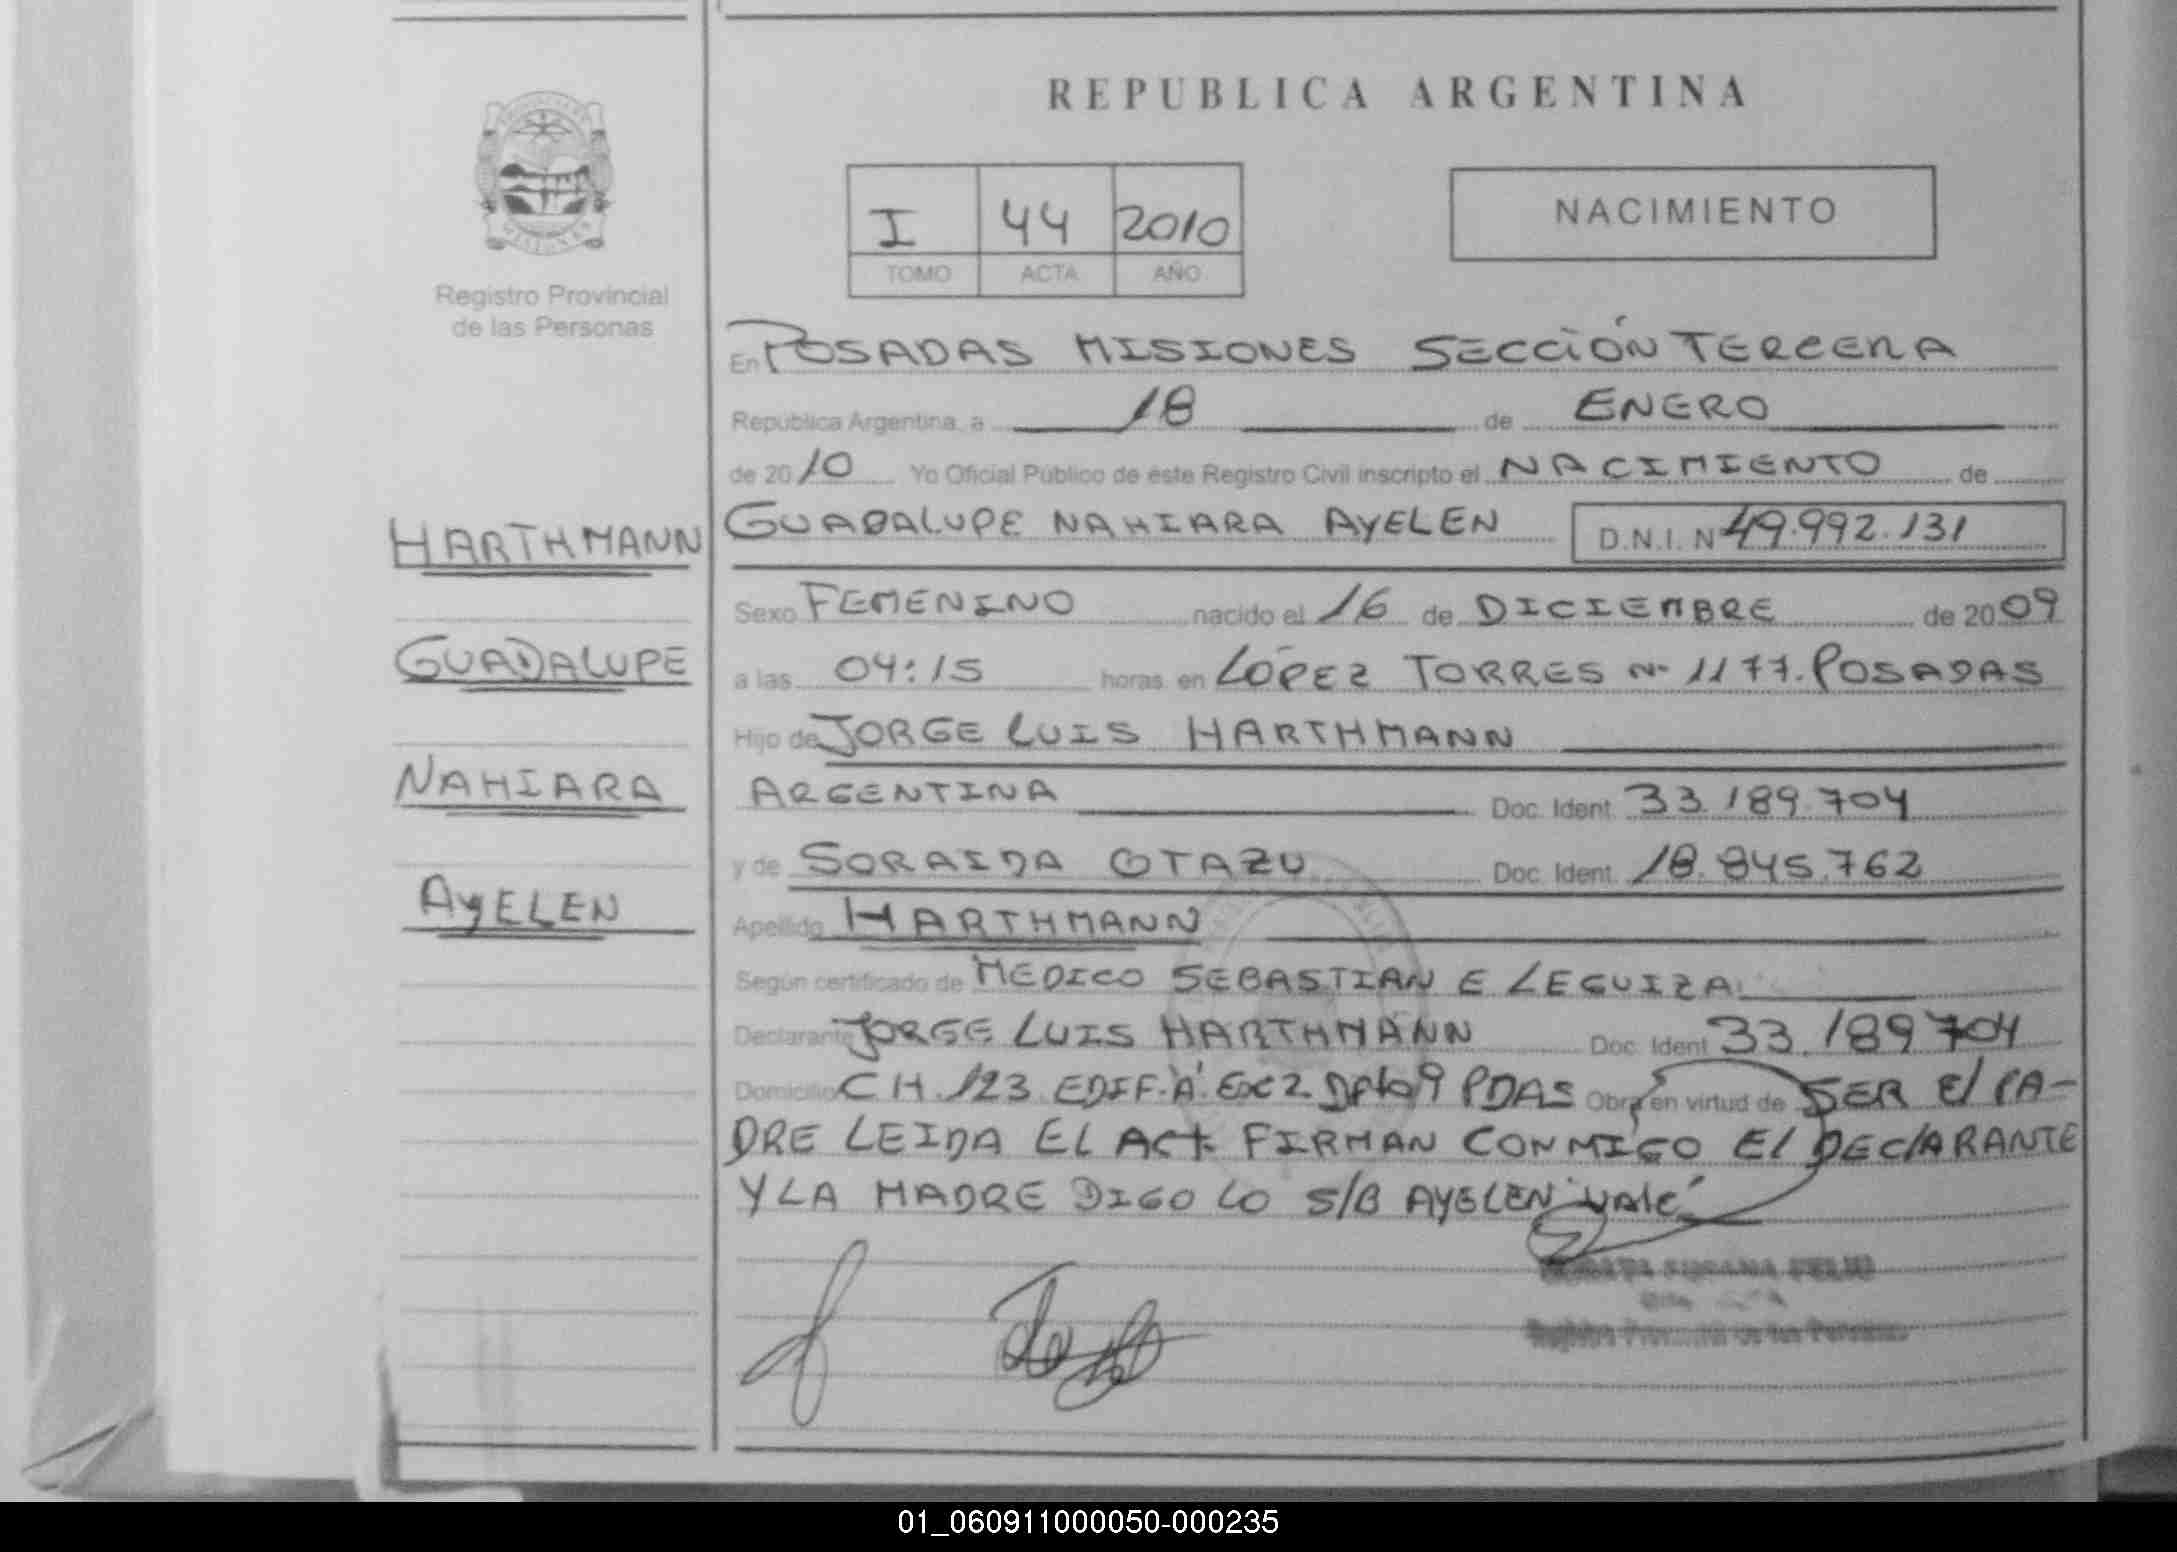 REPUBLICA ARGENTINA
NACIMIENTO
I 44 2010
TOMO ACTA AÑO
MISIONES
Registro Provincial
de las Personas
En POSADAS MISIONES SECCIÓN TERCERA
República Argentina, a 18 de ENERO
de 2010 Yo Oficial Público de éste Registro Civil inscripto el NACIMIENTO de
HARTHMANN
GUADALUPE NAHIARA AYELEN D.N.I. N 49.992.131
Sexo FEMENINO nacido el 16 de DICIEMBRE de 2009
GUADALUPE
a las 04:15 horas en LÓPEZ TORRES Nº 1177. POSADAS
Hijo de JORGE LUIS HARTHMANN
NAHIARA
ARGENTINA Doc. Ident. 33.189.704
y de SORAIDA OTAZU Doc. Ident. 18.845.762
AYELEN
Apellido HARTHMANN
Según certificado de MEDICO SEBASTIAN E LEGUIZA
Declarante JORGE LUIS HARTHMANN Doc. Ident 33.189704
Domicilio CH.123 EDIF.'A' ESC 2 DPto 9 PDAS Obra en virtud de SER El PA-
DRE LEIDA EL ACt FIRMAN CONMIGO El DEClARANTE
Y LA MADRE DIGO LO S/B AYELEN "VAlE"
SUSANA
Registro Provincial de las Personas
01_060911000050-000235